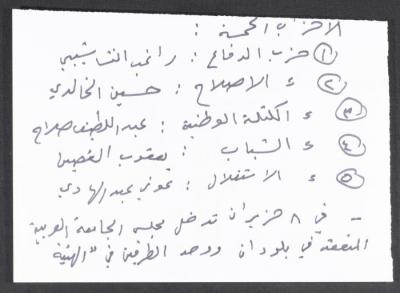 الاحزاب الخمسة :
① حزب الدفاع : راغب النشاشيبي
② ء الاصلاح : حسين الخالدي
③ ء الكتلة الوطنية : عبد اللطيف صلاح
④ ء الشباب : يعقوب الغصين
⑤ ء الاستقلال : عوني عبد الهادي
- في ٨ حزيران تدخل مجلس الجامعة العربية
المنعقد في بلودان ووحد الطرفين في "الهيئة